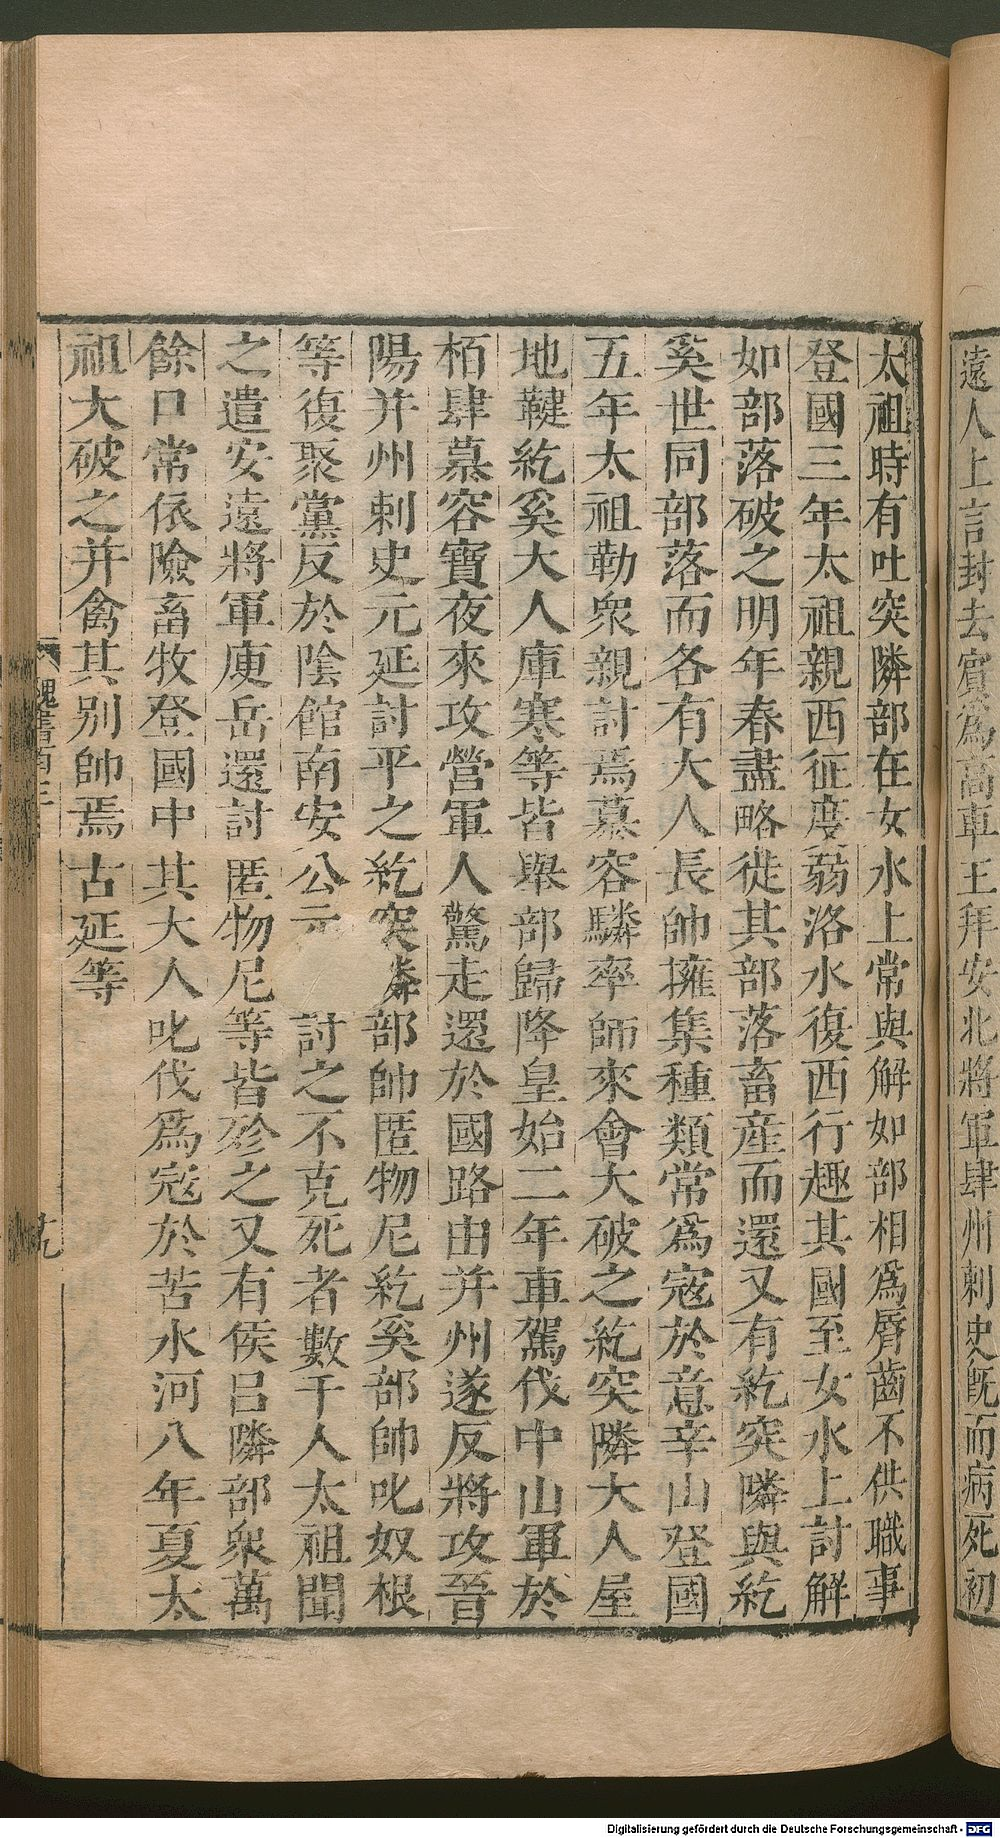 遠人上言封去賓為高車王拜安北將軍肆州刺史既而病死初
太祖時有吐突隣部在女水上常與解如部相為脣齒不供職事
登國三年太祖親西征度弱洛水復西行趣其國至女水上討解
如部落破之明年春盡略徙其部落畜產而還又有紇突隣與紇
奚世同部落而各有大人長帥擁集種類常為寇於意辛山登國
五年太祖勒衆親討焉慕容驎率師來會大破之紇突隣大人屋
地鞬紇奚大人庫寒等皆舉部歸降皇始二年車駕伐中山軍於
栢肆慕容寶夜來攻營軍人驚走還於國路由并州遂反將攻晉
陽并州剌史元延討平之紇突鄰部帥匿物尼紇奚部帥叱奴根
等復聚黨反於陰館南安公元 討之不克死者數千人太祖聞
之遣安遠將軍庾岳還討匿物尼等皆殄之又有侯呂隣部衆萬
餘口常依險畜牧登國中其大人叱伐為寇於苦水河八年夏太
祖大破之并禽其別帥焉古延等
魏書
廿九
Digitalisierung gefördert durch die Deutsche Forschungsgemeinschaft - DFG